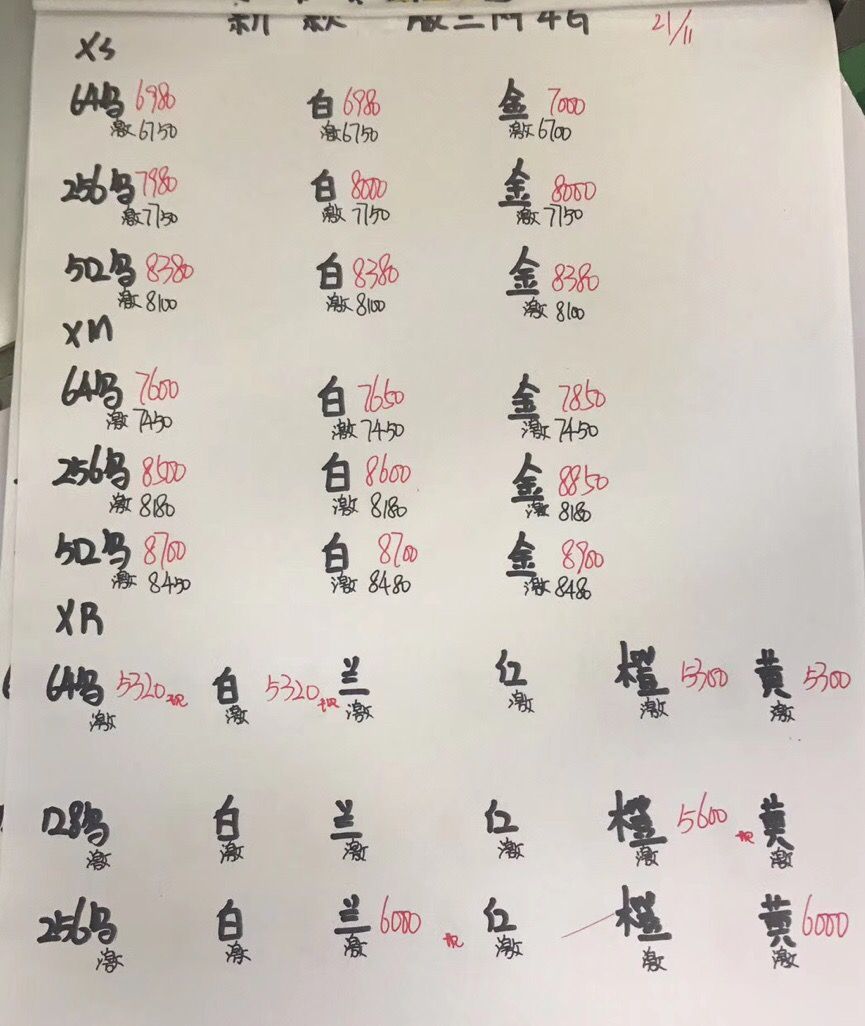 新款 版三网4G 21/11
XS
64乌 6980 白 6980 金 7000
激6750 激6750 激6700
256乌 7980 白 8000 金 8000
激7750 激7750 激7750
512乌 8380 白 8380 金 8380
激8100 激8100 激8100
XM
64乌 7600 白 7650 金 7850
激7450 激7450 激7450
256乌 8500 白 8600 金 8850
激8180 激8180 激8180
512乌 8700 白 8700 金 8900
激8450 激8480 激8480
XR
64乌 5320 现 白 5320 现 兰 红 橙 5300 黄 5300
激 激 激 激 激 激
128乌 白 兰 红 橙 5600 现 黄
激 激 激 激 激 激
256乌 白 兰 6000 现 红 橙 黄 6000
激 激 激 激 激 激